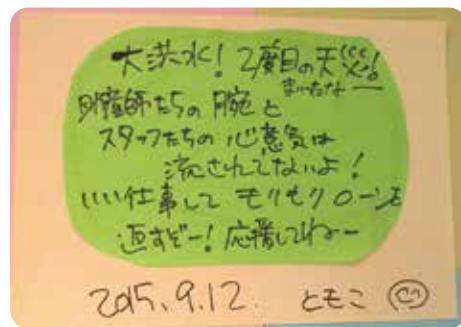 大洪水！2度目の天災！
まいったなー
助産師たちの腕と
スタッフたちの心意気は
流されてないよ！
いい仕事して もりもりローンを
返すぞー！応援してねー
2015.9.12. ともこ